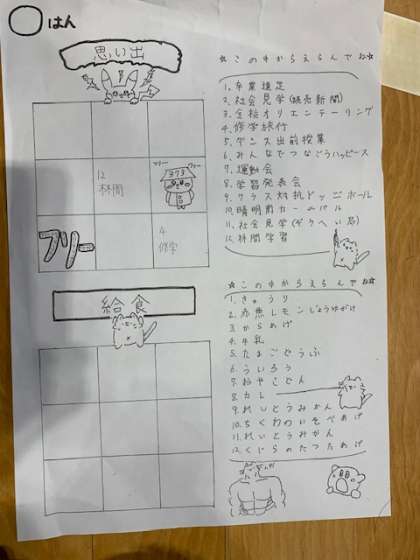 はん
思い出
☆このなかからえらんでね☆
1.卒業遠足
2.社会見学(読売新聞)
3.全校オリエンテーリング
4.修学旅行
5.ダンス出前授業
6.みんなでつなごうハッピース
7.運動会
8.学習発表会
9.クラス対抗ドッジボール
10.晴明前カーニバル
12.林間学習
12
林間
フリー
4
修学
フリー
給食
☆このなかからえらんでね☆
1.きゅうり
3.からあげ
4.牛乳
5.たまごどうふ
6.ういろう
7.おやこどん
8.カレー
9.れいとうみかん
10.ちくわのいそべあげ
11.れいとうみかん
12.くじらのたつたあげ